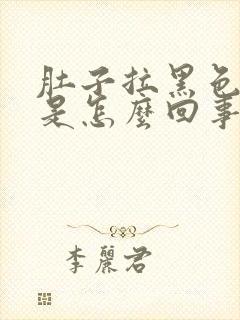 肚子拉黑色
是怎麼回事
李麗君